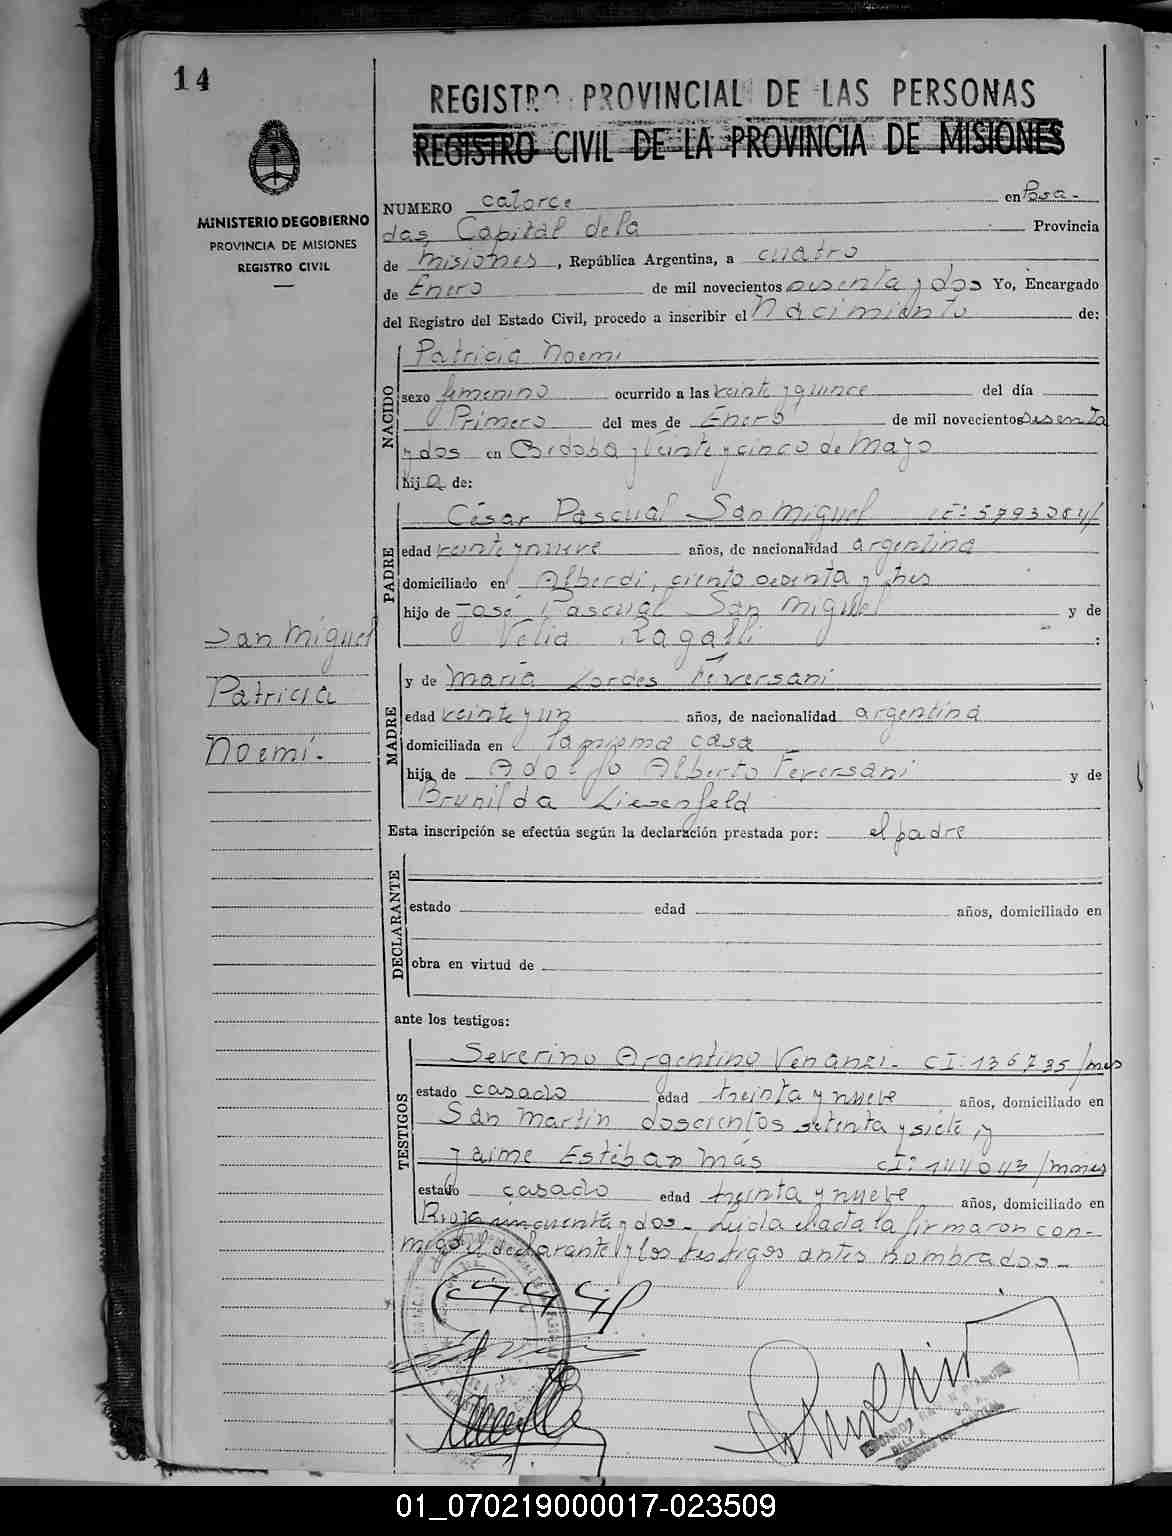 14
REGISTRO PROVINCIAL DE LAS PERSONAS
REGISTRO CIVIL DE LA PROVINCIA DE MISIONES
MINISTERIO DE GOBIERNO
PROVINCIA DE MISIONES
REGISTRO CIVIL
NUMERO catorce en Posa-
das, Capital de la Provincia
de misiones, República Argentina, a cuatro
de Enero de mil novecientos sesenta y dos Yo, Encargado
del Registro del Estado Civil, procedo a inscribir el Nacimiento de:
NACIDO
Patricia Noemi
sexo femenino ocurrido a las veinte y quince del día
Primero del mes de Enero de mil novecientos sesenta
y dos en Cordoba y Veinte y cinco de Mayo
hija de:
PADRE
César Pascual San Miguel
edad veinte y nueve años, de nacionalidad argentina
domiciliado en Alberdi, ciento sesenta y tres
hijo de José Pascual San Miguel y de
Velia Ragalli :
San Miguel
Patricia
Noemí.
MADRE
y de María Lordes Feversani
edad veinte y un años, de nacionalidad argentina
domiciliada en la misma casa
hija de Adolfo Alberto Feversani y de
Brunilda Liesenfeld
Esta inscripción se efectúa según la declaración prestada por: el padre
DECLARANTE
estado edad años, domiciliado en
obra en virtud de
ante los testigos:
TESTIGOS
Severino Argentino Venanzi- CI: 136735/mnes
estado casado edad treinta y nueve años, domiciliado en
San Martín doscientos setenta y siete, y
Jaime Esteban Más CI: 144043/mnes
estado casado edad treinta y nueve años, domiciliado en
Rioja cincuenta y dos- Leída el acta la firmaron con-
migo el declarante y los testigos antes nombrados-
01_070219000017-023509